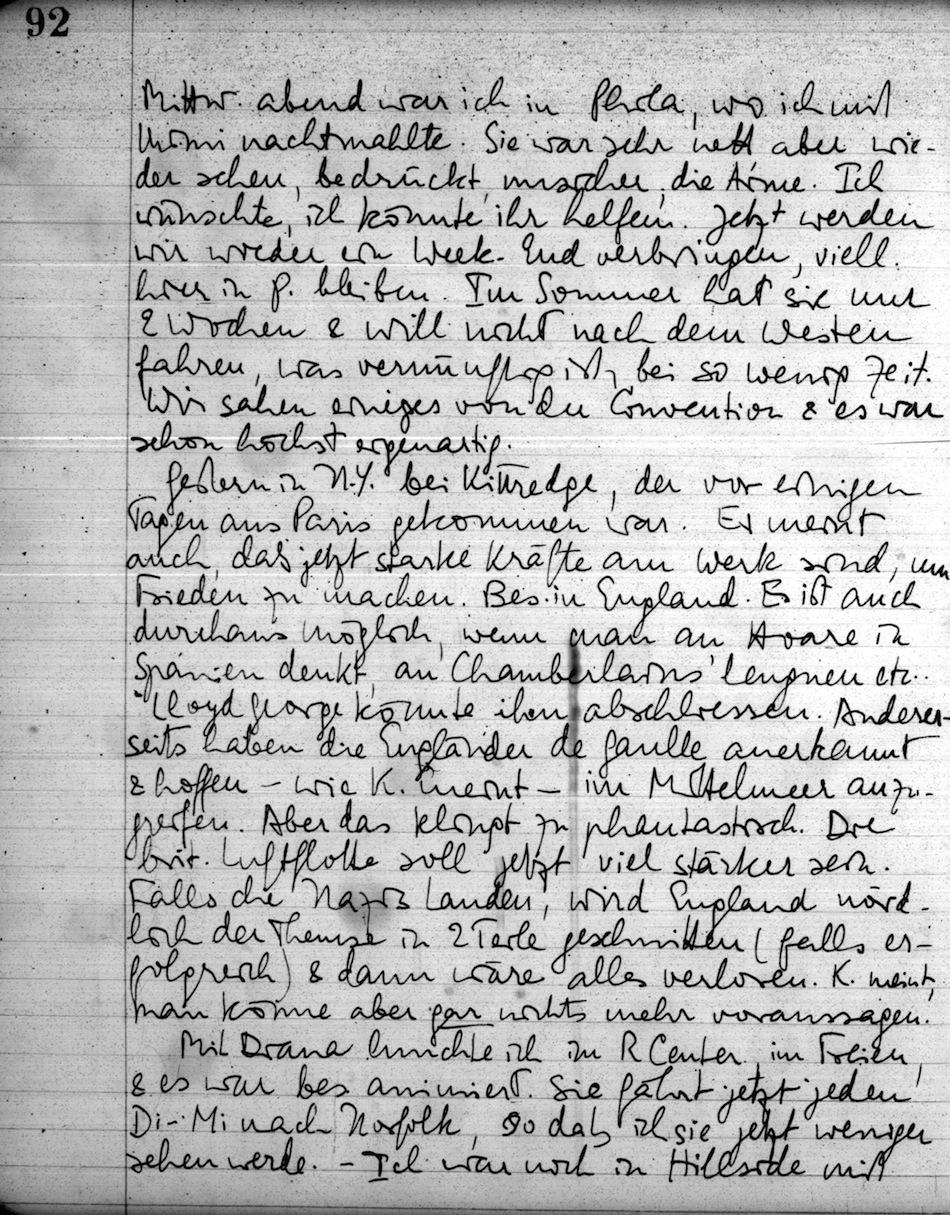 92
Mittw. abend war ich in Phila, wo ich mit
Mimi nachtmahlte. Sie war sehr nett aber wie-
der scheu, bedrückt, unsicher, die Arme. Ich
wünschte, ich könnte ihr helfen. Jetzt werden
wir wieder ein Week-End verbringen, viell.
hier in P. bleiben. Im Sommer hat sie nur
2 Wochen & will nicht nach dem Westen
fahren, was vernünftig ist, bei so wenig Zeit.
Wir sahen einiges von der Convention & es war
schon höchst eigenartig.
Gestern in N.Y. bei Kittredge, der vor einigen
Tagen aus Paris gekommen war. Er meint
auch, daß jetzt starke Kräfte am Werk sind, um
Frieden zu machen. Bes. in England. Es ist auch
durchaus möglich, wenn man an Hoare in
Spanien denkt, an Chamberlains' leugnen etc..
Lloyd George könnte ihn abschliessen. Anderer-
seits haben die Engländer de Gaulle anerkannt
& hoffen – wie K. meint – im Mittelmeer anzu-
greifen. Aber das klingt zu phantastisch. Die
brit. Luftflotte soll jetzt viel stärker sein.
Falls die Nazis landen, wird England nörd-
lich der Themse in 2 Teile geschnitten (falls er-
folgreich) & dann wäre alles verloren. K. meint,
man könne aber gar nichts mehr voraussagen.
Mit Diana lunchte ich im R Center, im Freien,
& es war bes animiert. Sie fährt jetzt jeden
Di-Mi nach Norfolk, so daß ich sie jetzt weniger
sehen werde. – Ich war noch in Hillside mit